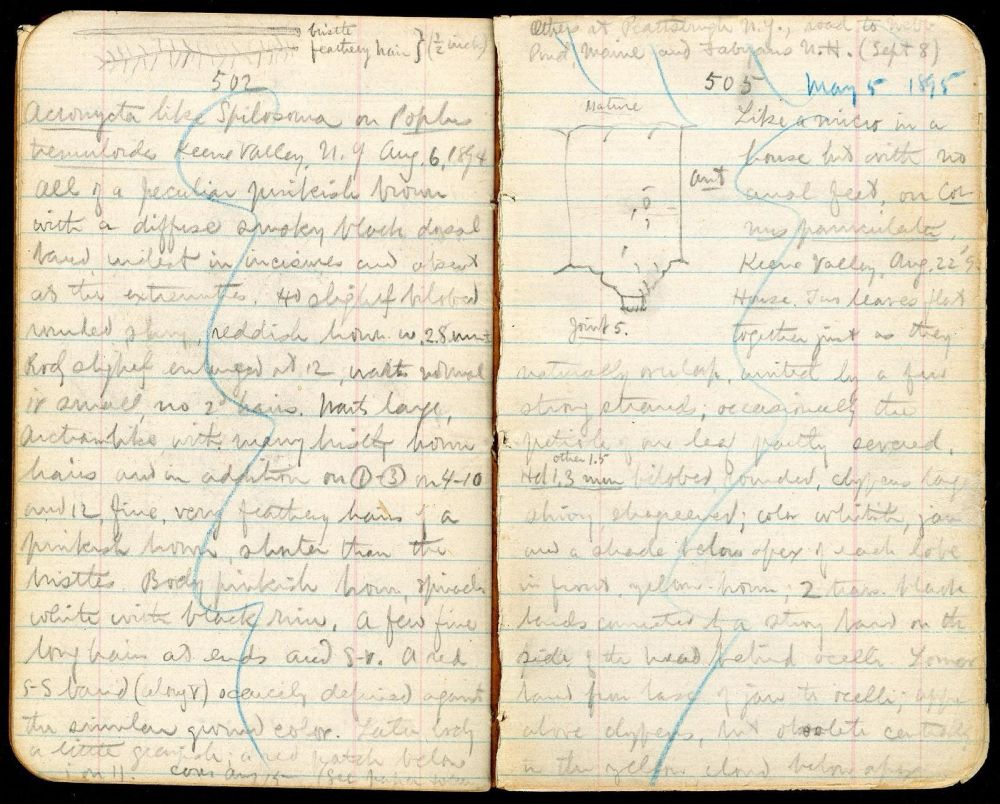 bristle
feathery hair } (1/2 inch)
502
Acronycta like Spilosoma on Poplus
tremuloides Keene Valley, N.Y Aug. 6, 1894
All of a peculiar pinkish brown
with a diffuse smoky black dorsal
band, widest in incisures and absent
at the extremities. Hd slightly bilobed
rounded shiny, reddish brown w. 2.8 mm
Body slightly enlarged at 12, warts normal
small, no 2d hairs. Warts large,
Arctian like, with many bristly brown
hairs and in addition on ①-③ on 4-10
and 12, fine, very feathery hairs of a
pinkish brown, shorter than the
bristles. Body pinkish brown, spiracles
white with black rim. A few fine
long hairs at ends and s-v. A red
s-s band (along v) scarcely defined against
the similar ground color. Later body
a little grayish; a red patch below
on 11. (See
Others at Plattsburgh N.Y., road to Webb
Pond, Maine and Fabyans N.H. (Sept 8)
505 May 5 1895
Mature
ant
Joint 5.
Like a micro in a
house but with no
anal feet, on Cor
nus paniculata,
Keene Valley, Aug. 22
House. Two leaves flat
together just as they
naturally overlap, united by a few
strong strands; occasionally the
petiole of one leaf partly severed.
other 1.5
Hd 1.3 mm bilobed, rounded, clypeus large
shiny, shagreened; color whitish, jaws
and a shade below apex of each lobe
in front yellow-brown; 2 trans. black
bands connected by a strong band on the
side of the head behind ocelli. Lower
band from base of jaw to ocelli; upper
above clypeus, but obsolete centrally
in the yellow cloud below apex